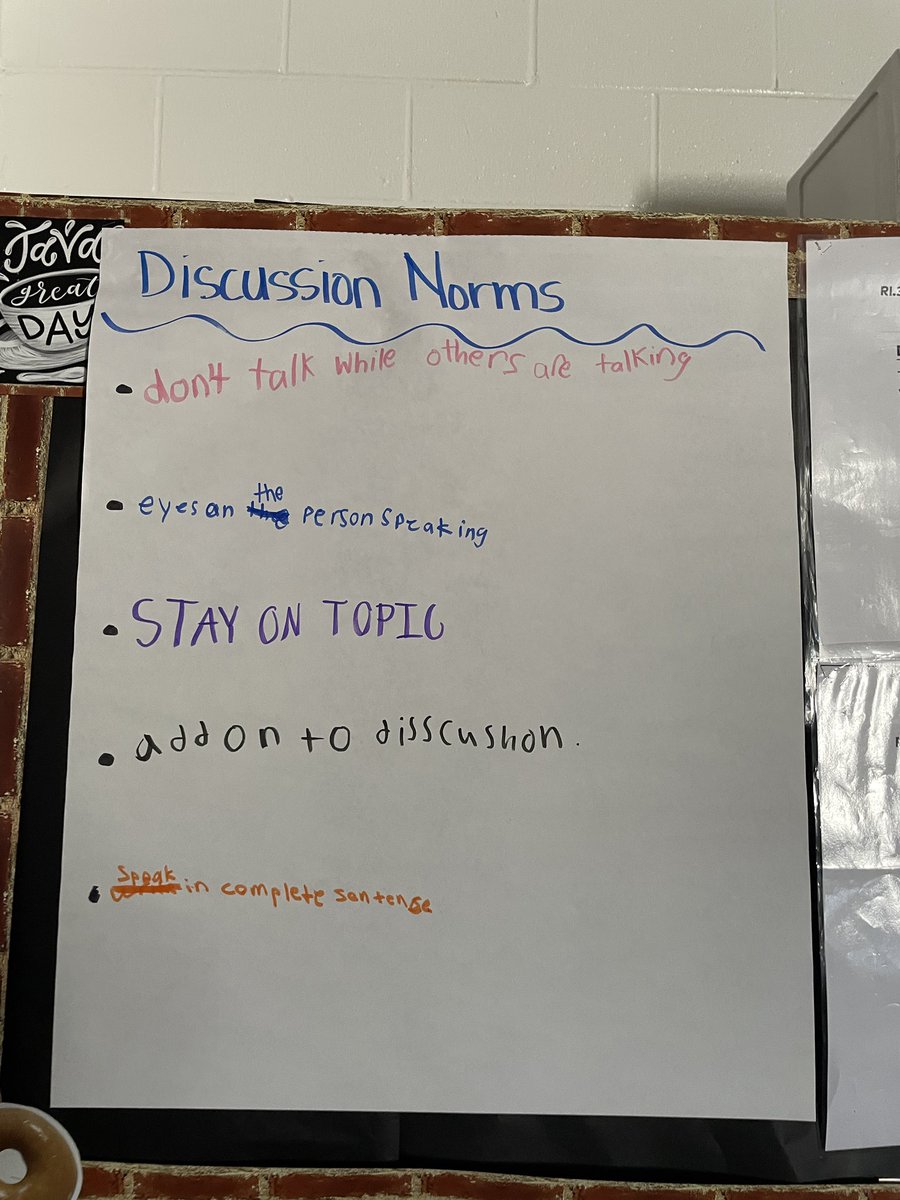 Java
great
DAY
Discussion Norms
• don't talk while others are talking
• eyes an the person speaking
• STAY ON TOPIC
• add on to disscushon.
• Speak in complete sentense
RI.3